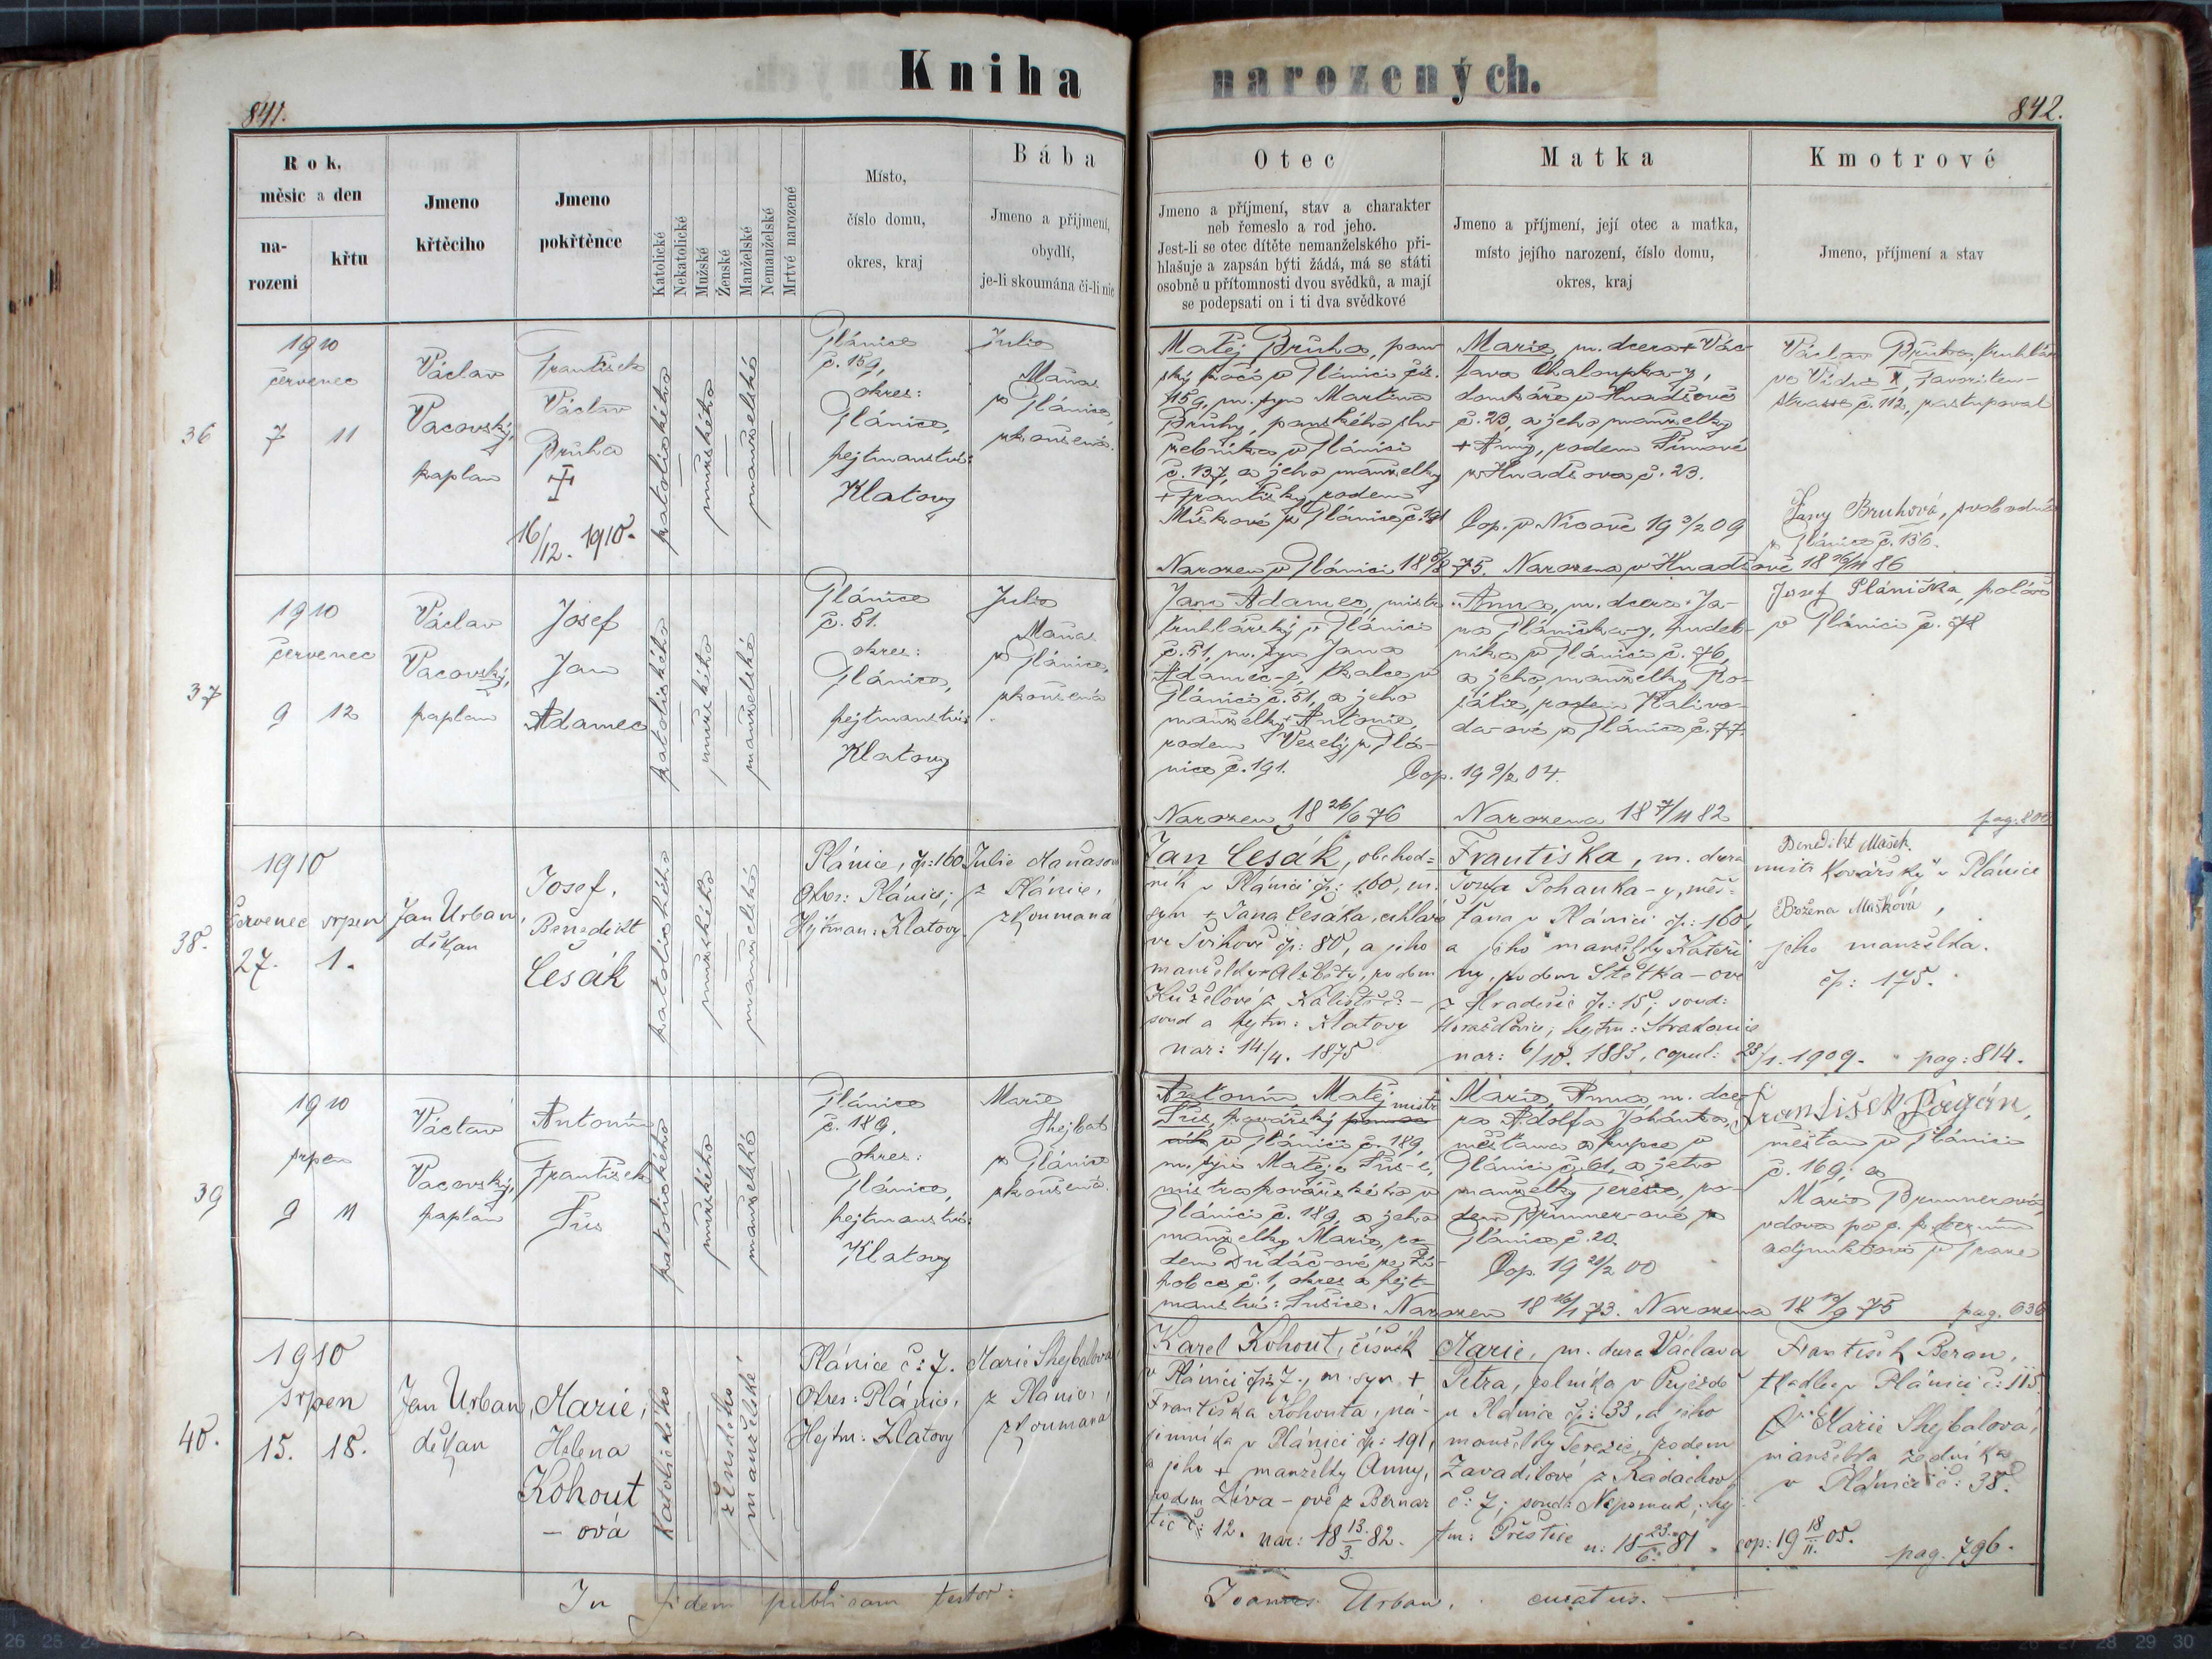 Kniha narozených.
841.
842.
Rok,
měsic a den
na-
rozeni
křtu
Jmeno
křtěcího
Jmeno
pokřtěnce
Katolické
Nekatolické
Mužské
Ženské
Manželské
Nemanželské
Mrtvé narozené
Místo,
číslo domu,
okres, kraj
Bába
Jmeno a přijmení,
obydlí,
je-li skoumána čí-li nic
Otec
Jmeno a příjmení, stav a charakter
neb řemeslo a rod jeho.
Jest-li se otec dítěte nemanželského při-
hlašuje a zapsán býti žádá, má se státi
osobně u přítomnosti dvou svědků, a mají
se podepsati on i ti dva svědkové
Matka
Jmeno a příjmení, její otec a matka,
místo jejího narození, číslo domu,
okres, kraj
Kmotrové
Jmeno, příjmení a stav
36
1910
červenec
7 11
Václav
Pacovský,
kaplan
František
Václav
Průha
16/12. 1910.
katolického
mužského
manželské
Plánice
č. 159,
okres:
Plánice,
hejtmanství:
Klatovy
Julie
Maňas
z Plánice,
zkoušená.
Matěj Průha, pan-
ský kočí v Plánici čís.
159, m. syn Martina
Průhy, panského slu-
žebníka v Plánici
č. 137, a jeho manželky
+ Františky, rodem
Míškové z Plánice č. 191
Narozen v Plánici 18 5/8 75.
Marie, m. dcera + Vác-
lava Chaloupka-y,
domkáře v Hnačově
č. 23, a jeho manželky
+ Anny, rodem Šímové
z Hnačova č. 23.
Cop. v Nicově 19 9/2 09
Narozena v Hnačově 18 26/11 86
Václav Průha, truhlář
ve Vídni X, Favoriten-
strasse č. 112, zastupoval
Fany Bruhová, svobodná
z Plánice č. 136.
37
1910
červenec
9 12
Václav
Pacovský,
kaplan
Josef
Jan
Adamec
katolického
mužského
manželské
Plánice
č. 51.
okres:
Plánice,
hejtmanství:
Klatovy
Julie
Maňas
z Plánice,
zkoušená
Jan Adamec, mistr
truhlářský v Plánici
č. 51, m. syn Jana
Adamec-e, tkalce v
Plánici č. 51, a jeho
manželky + Antonie,
rodem Veselý z Plá-
nice č. 191.
Narozen 18 26/6 76
Anna, m. dcera Ja-
na Plánička-y, hudeb-
níka v Plánici č. 76,
a jeho manželky Ro-
zálie, rodem Kalivo-
da-ové z Plánice č. 77.
Cop. 19 9/2 04.
Narozena 18 7/11 82
Josef Plánička, kolář
v Plánici č. 78
pag. 800
38.
1910
červenec srpen
27. 1.
Jan Urban,
děkan
Josef,
Benedikt
Česák
katolického
mužského
manželské
Plánice, čp: 160.
Okres: Plánice;
Hejtman: Klatovy.
Julie Maňasová
z Plánice,
zkoumaná
Jan Česák, obchod=
ník v Plánici čp: 160, m.
syn + Jana Česáka, cihláře
ve Švihově čp: 80, a jeho
manželky + Alžběty, rodem
Kuželové z Kališť č: -
soud a hejtm: Klatovy
nar: 14/4. 1875
Františka, m. dcera
Josefa Pohanka-y, měš=
ťana v Plánici čp: 160,
a jeho manželky Kateři
ny, rodem Štětka-ové
z Hradešic čp: 15; soud:
Horažďovice; hejtm: Strakonice
nar: 6/10. 1883, copul: 23/1. 1909. pag: 814.
Benedikt Mašek,
mistr kovářský v Plánici
Božena Mašková,
jeho manželka.
čp: 175.
39
1910
srpen
9 11
Václav
Pacovský,
kaplan
Antonín
František
Šús
katolického
mužského
manželské
Plánice
č. 189.
okres:
Plánice,
hejtmanství:
Klatovy
Marie
Shejbal
z Plánice
zkoušená.
Antonín Matěj
Šús, kovářský mistr
v Plánici č. 189,
m. syn Matěje Šús-e,
mistra kovářského v
Plánici č. 189 a jeho
manželky Marie, ro-
dem Dudáč-ové ze Ži-
hobce č. 1, okres a hejt-
manství: Sušice. Narozen 18 16/1 73.
Marie Anna m. dce-
ra Adolfa Johánka,
měšťana a kupce v
Plánici č. 61, a jeho
manželky Terezie, ro-
dem Brunner-ové z
Plánice č. 20.
Cop. 19 20/2 00
Narozena 18 12/9 75
František
měšťan v Plánici
č. 169; a
Marie Brunnerová
vdova po c. k. berním
adjunktovi v Praze
pag. 636
40.
1910
srpen
15. 18.
Jan Urban,
děkan
Marie,
Helena
Kohout
- ová
Katolického
ženského
manželské
Plánice č: 7.
Okres: Plánice,
Hejtm: Klatovy
Marie Shejbalová
z Plánice,
zkoumaná
Karel Kohout, číšník
v Plánici čp: 7., m. syn +
Františka Kohouta, ná-
jemníka v Plánici čp: 191,
a jeho + manželky Anny,
rodem Líva-ové z Bernar
tic č: 12. nar: 18 13./3. 82.
Marie, m. dcera Václava
Petra, rolníka v Pujezdě
u Plánice čp: 33, a jeho
manželky Terezie, rodem
Zavadilové z Kadachov
č: 7; soud: Nepomuk; hej
tm: Přeštice n: 18 23./6. 81. cop: 19 18/II. 05.
František Beran,
tkadlec v Plánici č: 115.
Marie Shejbalová,
manželka zedníka
v Plánici č: 38.
pag. 796.
In fidem publicam testor:
Joannes Urban, curatus.